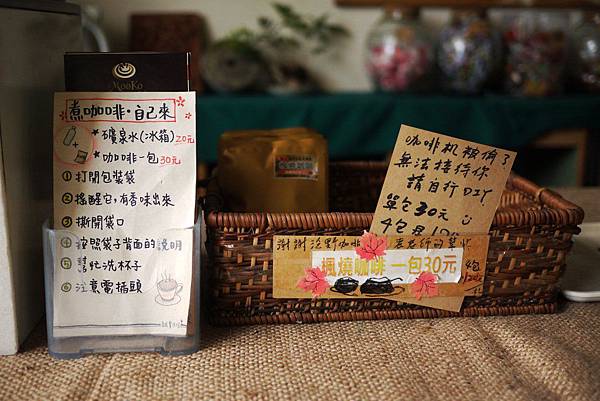 MooKo
煮咖啡·自己來
★礦泉水(冰箱)20元
★咖啡一包30元
①打開包裝袋
②搖醒它,有香味出來
③撕開袋口
④按照袋子背面的說明
⑤幫忙洗杯子
⑥注意電插頭
咖啡机
無法接待你
請自行DIY
單包30元
謝謝
楓燒咖啡一包30元